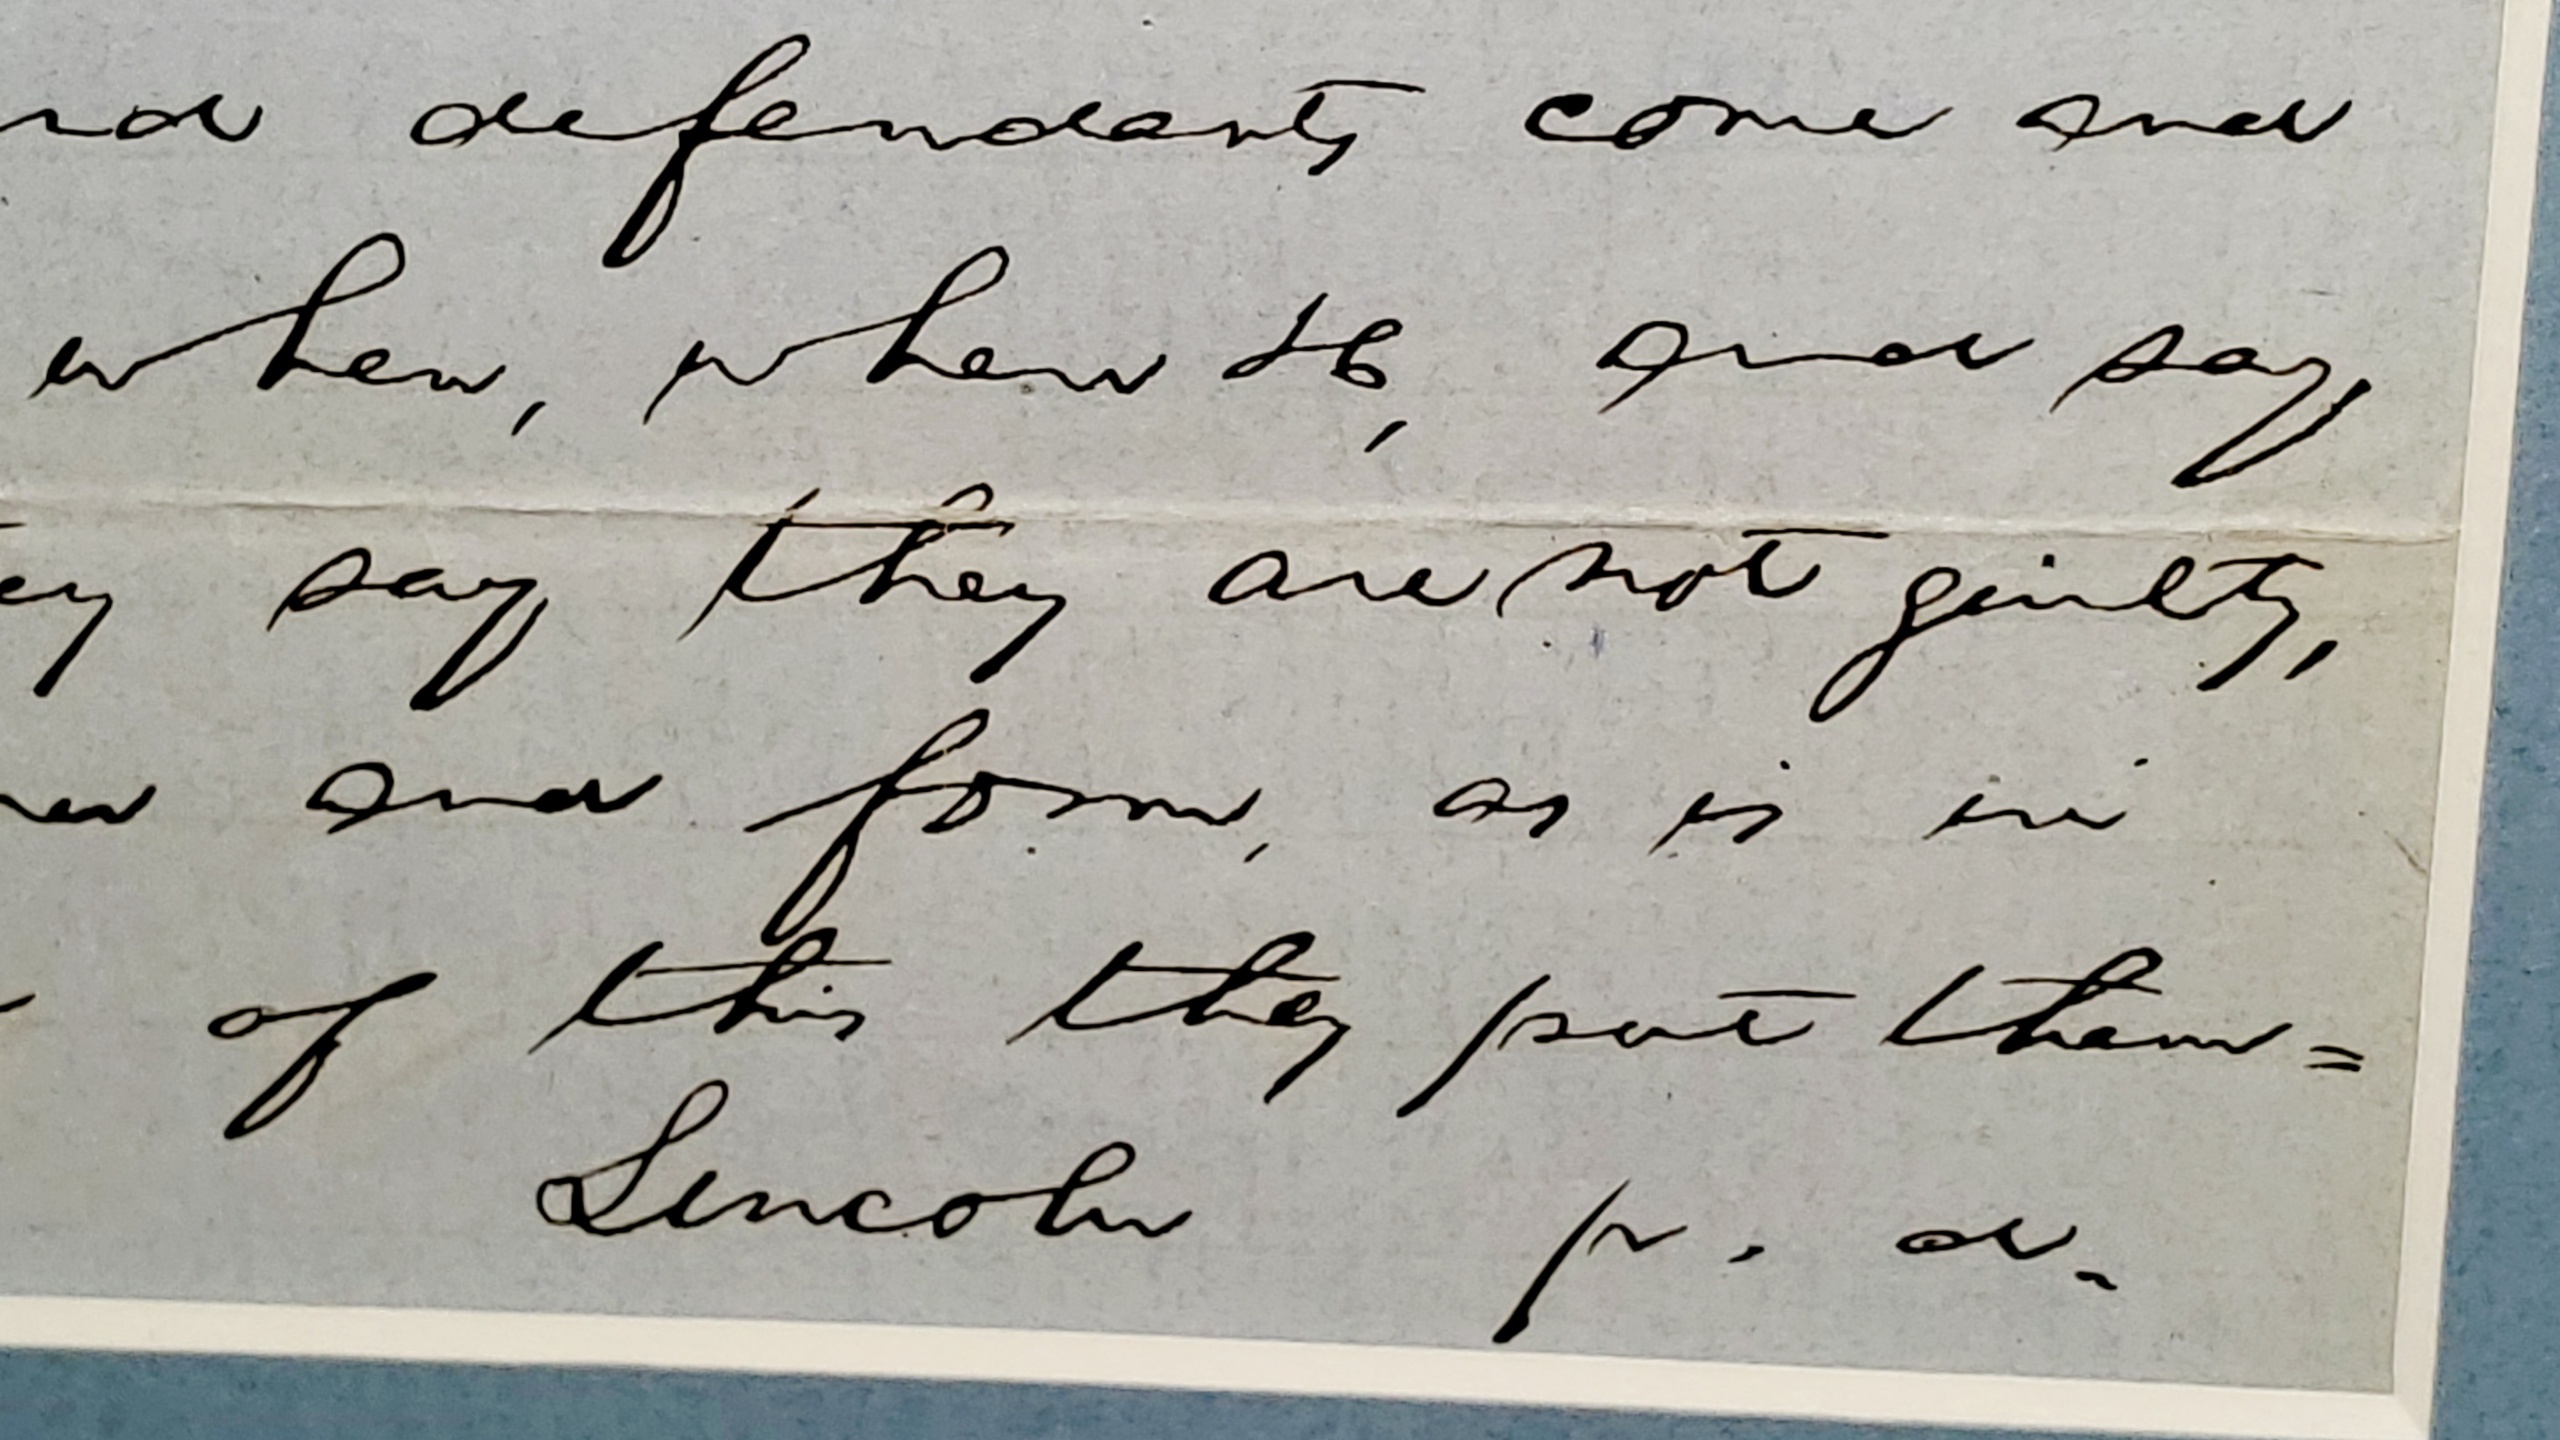 nd defendants come and
when, when &c, and say,
ey say they are not guilty,
ner and form, as is in
of this they put them=
Lincoln p. d.